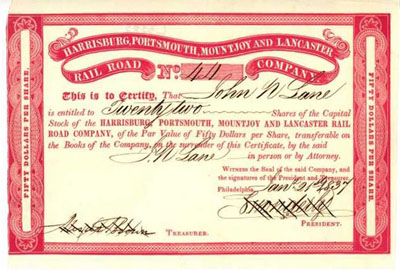 HARRISBURG, PORTSMOUTH, MOUNTJOY AND LANCASTER
RAIL ROAD No. 411 COMPANY.
This is to Certify, That John N Lane
is entitled to Twenty two Shares of the Capital
Stock of the HARRISBURG, PORTSMOUTH, MOUNTJOY AND LANCASTER RAIL
ROAD COMPANY, of the Par Value of Fifty Dollars per Share, transferable on
the Books of the Company, on the surrender of this Certificate, by the said
J. N Lane in person or by Attorney.
Witness the Seal of the said Company, and
the signatures of the President and Treasurer.
Philadelphia, Jan 1837
TREASURER.
PRESIDENT.
FIFTY DOLLARS PER SHARE.
FIFTY DOLLARS PER SHARE.